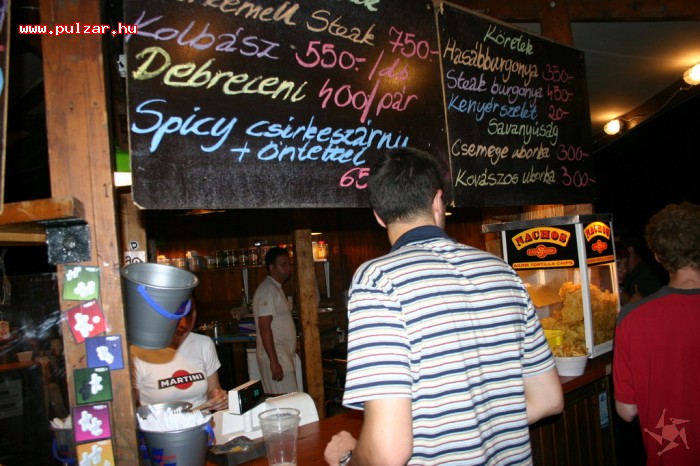 www.pulzar.hu
Steak 750.-
Kolbász 550.-/db
Debreceni 400/pár
Spicy csirkeszárny
+ öntettel
Köretek
Hasábburgonya 350.-
Steak burgonya 450.-
Kenyér szelet 20.-
Savanyúság
Csemege uborka 300.-
Kovászos uborka 300.-
NACHOS
WARM TORTILLA CHIPS
NACHOS
MARTINI